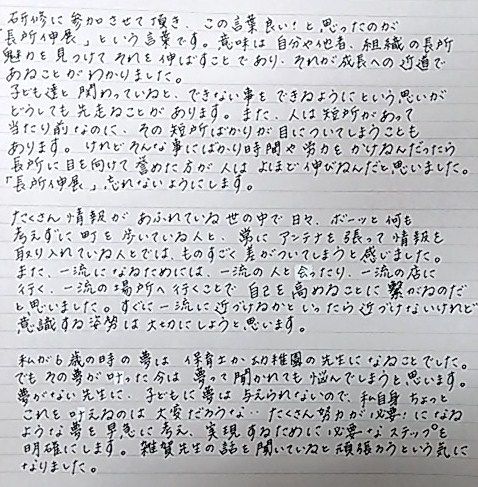 研修に参加させて頂き、この言葉良い！と思ったのが
「長所伸展」という言葉です。意味は自分や他者、組織の長所
魅力を見つけてそれを伸ばすことであり、それが成長への近道で
あることがわかりました。
子ども達と関わっていると、できない事をできるようにという思いが
どうしても先走ることがあります。また、人は短所があって
当たり前なのに、その短所ばかりが目についてしまうことも
あります。けれどそんな事にばかり時間や労力をかけるんだったら
長所に目を向けて誉めた方が人はよほど伸びるんだと思いました。
「長所伸展」忘れないようにします。
たくさん情報があふれている世の中で日々、ボーッと何も
考えずに町を歩いている人と、常にアンテナを張って情報を
取り入れている人とでは、ものすごく差がついてしまうと感じました。
また、一流になるためには、一流の人と会ったり、一流の店に
行く、一流の場所へ行くことで自己を高めることに繋がるのだ
と思いました。すぐに一流に近づけるかといったら近づけないけれど
意識する姿勢は大切にしようと思います。
私が6歳の時の夢は保育士か幼稚園の先生になることでした。
でもその夢が叶った今は夢って聞かれても悩んでしまうと思います。
夢がない先生に、子どもに夢は与えられないので、私自身ちょっと
これを叶えるのは大変だろうな‥たくさん努力が必要!になる
ような夢を早急に考え、実現するために必要なステップを
明確にします。雑賀先生の話を聞いていると頑張ろうという気に
なりました。